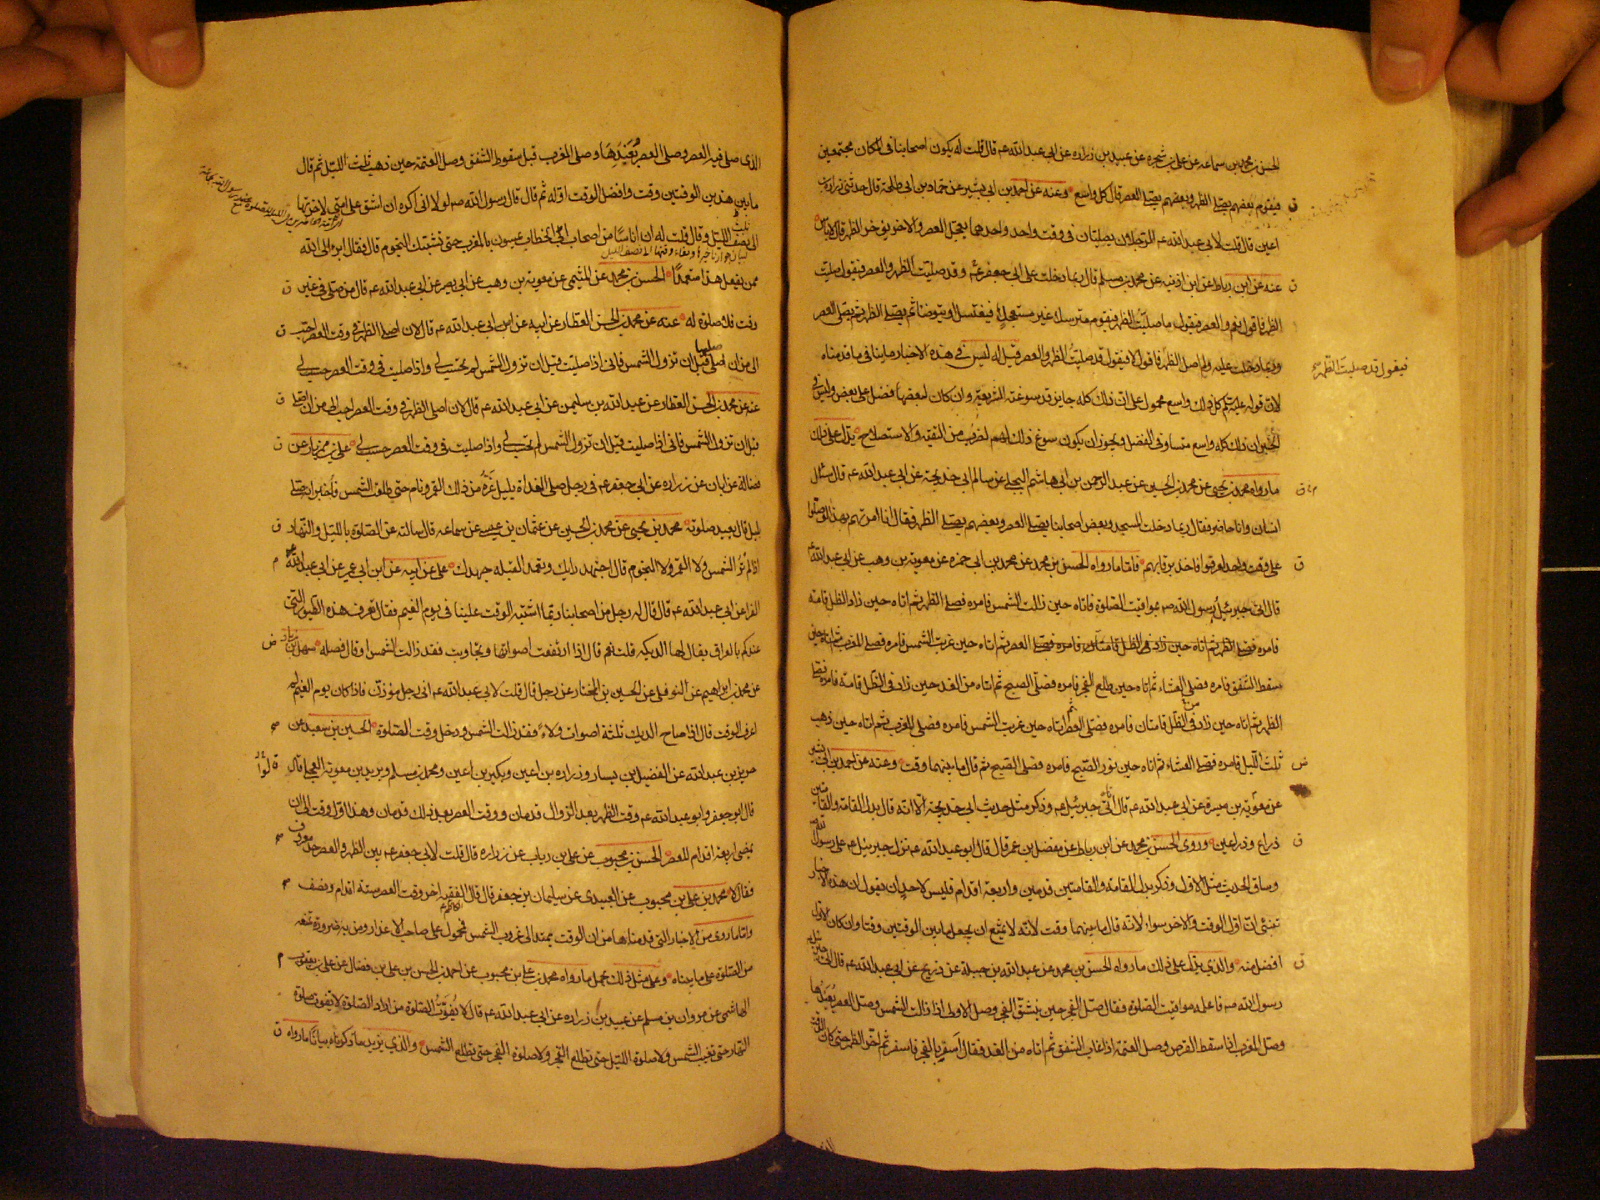 الحسن بن محمد بن سماعه عن علي بن شجره عن عبيد بن زراره عن ابي عبد الله عم قال قلت له يكون اصحابنا في المكان مجتمعين
فيقوم بعضهم يصلي الظهر وبعضهم يصلي العصر قال كل واسع وعنه عن احمد بن ابي بشير عن حماد بن ابي طلحة قال حدثني زراره بن
اعين قال قلت لابي عبد الله عم الرجلان يصليان في وقت واحد واحدهما يعجل العصر والاخر يؤخر الظهر قال لا باس
عنه عن ابن رباط عن ابن اذينه عن محمد بن مسلم قال ربما دخلت على ابي جعفر عم وقد صليت الظهر والعصر فيقول صليت
الظهر فاقول نعم والعصر فيقول ما صليت الظهر فيقوم مترسلا غير مستعجل فيغتسل او يتوضا ثم يصلي الظهر ثم يصلي العصر
وربما دخلت عليه ولم اصل الظهر فاقول لا فيقول قد صليت الظهر والعصر قيل له ليس في هذه الاخبار ما ينافي ما قدمناه
فيقول قد صليت الظهر
لان قوله عليه السلام كل ذلك واسع محمول على ان ذلك كله جايز قد سوغته الشريعة وان كان لبعضها فضل على بعض وليس في
الخبر ان ذلك كله واسع متساو في الفضل ويجوز ان يكون سوغ ذلك لهم لضرب من التقيه والاستصلاح يدل على ذلك
ما رواه محمد بن يحيى عن محمد بن الحسين عن عبد الرحمن بن ابي هاشم البجلي عن سالم ابي خديجة عن ابي عبد الله عم قال سئل
انسان وانا حاضر فقال ربما دخلت المسجد وبعض اصحابنا يصلي العصر وبعضهم يصلي الظهر فقال انا امرتهم بهذا لو صلوا
على وقت واحد لعرفوا فاخذ برقابهم فاما ما رواه الحسن بن محمد عن محمد بن ابي حمزه عن معوية بن وهب عن ابي عبد الله
قال اتى جبرئيل رسول الله صه بمواقيت الصلوة فاتاه حين زالت الشمس فامره فصلى الظهر ثم اتاه حين زاد الظل قامة
فامره فصلى العصر ثم اتاه حين غربت الشمس فامره فصلى المغرب ثم اتاه حين
سقط الشفق فامره فصلى العشاء ثم اتاه حين طلع الفجر فامره فصلى الصبح ثم اتاه من الغد حين زاد في الظل قامة فامره فصلى
الظهر ثم اتاه حين زاد في الظل قامتان فامره فصلى العصر ثم اتاه حين غربت الشمس فامره فصلى المغرب ثم اتاه حين ذهب
ثلث الليل فامره فصلى العشاء ثم اتاه حين نور الصبح فامره فصلى الصبح ثم قال ما بينهما وقت وعنه عن احمد بن ابي بشر
عن معوية بن ميسرة عن ابي عبد الله عم قال اتى جبرئيل عم وذكر مثل حديث ابي خديجة الا انه قال بدل القامة والقامتين
ذراع وذراعين وروى الحسن بن محمد عن ابن رباط عن مفضل بن عمر قال قال ابو عبد الله عم نزل جبرئيل عم على رسول الله
وساق الحديث مثل الاول وذكر بدل القامة والقامتين قدمين واربعة اقدام فليس لاحد ان يقول ان هذه الاخبار
تنبئ ان اول الوقت والاخر سواء لانه قال ما بينهما وقت لانه لا يمتنع ان يجعل ما بين الوقتين وقتا وان كان الاول
افضل منه والذي يدل على ذلك ما رواه الحسن بن محمد عن عبد الله بن جبلة عن ذريح عن ابي عبد الله عم قال اتى جبرئيل
رسول الله صه فاعلمه مواقيت الصلوة فقال صل الفجر حين ينشق الفجر وصل الاولى اذا زالت الشمس وصل العصر بعيدها
وصل المغرب اذا سقط القرص وصل العتمة اذا غاب الشفق ثم اتاه من الغد فقال اسفر بالفجر فاسفر ثم اخر الظهر حين كان الوقت
الذي صلى فيه العصر وصلى العصر بعيدها وصلى المغرب قبل سقوط الشفق وصلى العتمة حين ذهب ثلث الليل ثم قال
ما بين هذين الوقتين وقت وافضل الوقت اوله ثم قال قال رسول الله صه لولا اني اكره ان اشق على امتي لاخرتها
الى نصف الليل وقال قلت له ان اناسا من اصحاب ابي الخطاب يمسون بالمغرب حتى تشتبك النجوم قال فقال ابرء الى الله
ممن يفعل هذا متعمدا الحسن بن محمد عن الميثمي عن معوية بن وهب عن ابي بصير عن ابي عبد الله عم قال من صلى في غير
وقت فلا صلوة له عنه عن محمد بن الحسن العطار عن ابيه عن ابي عبد الله عم قال لان اصلي الظهر في وقت العصر احب
الي من ان اصلي قبل ان تزول الشمس فاني اذا صليت قبل ان تزول الشمس لم تحتسب لي واذا صليت في وقت العصر حسب لي
عنه عن محمد بن الحسن العطار عن عبد الله بن سليمن عن ابي عبد الله عم قال لان اصلي الظهر في وقت العصر احب الي من ان اصلي
قبل ان تزول الشمس فاني اذا صليت قبل ان تزول الشمس لم تحتسب لي واذا صليت في وقت العصر حسب لي علي بن مهزيار عن
فضالة عن ابان عن زراره عن ابي جعفر عم في رجل صلى الغداة بليل غره من ذلك القمر ونام حتى طلعت الشمس فاخبر انه صلى
بليل قال يعيد صلوته محمد بن يحيى عن محمد بن الحسين عن عثمان بن عيسى عن سماعه قال سالته عن الصلوة بالليل والنهار
اذا لم تر الشمس ولا القمر ولا النجوم قال اجتهد رايك وتعمد القبلة جهدك علي عن ابيه عن ابن ابي عمير عن ابي عبد الله
الفراء عن ابي عبد الله عم قال قال له رجل من اصحابنا ربما اشتبه الوقت علينا في يوم الغيم فقال تعرف هذه الطيور التي
عندكم بالعراق يقال لها الديكه قلت نعم قال اذا ارتفعت اصواتها وتجاوبت فقد زالت الشمس وقال فصله سهل بن زياد
عن محمد بن ابراهيم عن النوفلي عن الحسين بن المختار عن رجل قال قلت لابي عبد الله عم اني رجل مؤذن فاذا كان يوم الغيم لم
اعرف الوقت قال اذا صاح الديك ثلثة اصوات ولاء فقد زالت الشمس ودخل وقت الصلوة الحسين بن سعيد عن
حريز بن عبد الله عن الفضيل بن يسار وزراره بن اعين وبكير بن اعين ومحمد بن مسلم وبريد بن معوية العجلي قال
قال ابو جعفر وابو عبد الله عم وقت الظهر بعد الزوال قدمان ووقت العصر بعد ذلك قدمان وهذا اول وقت الى ان
يمضي اربعة اقدام للعصر الحسن بن محبوب عن علي بن رباب عن زراره قال قلت لابي جعفر عم بين الظهر والعصر حد معروف
فقال لا محمد بن علي بن محبوب عن العبيدي عن سليمان بن جعفر قال قال الفقيه اخر وقت العصر ستة اقدام ونصف
واما ما روى من الاخبار التي قدمناها من ان الوقت يمتد الى غروب الشمس فمحمول على صاحب الاعذار ومن به ضرورة تمنعه
من الصلوة على ما بيناه وعلى مثل ذلك يحمل ما رواه محمد بن علي بن محبوب عن احمد بن الحسن بن علي بن فضال عن علي بن يعقوب
الهاشمي عن مروان بن مسلم عن عبيد بن زراره عن ابي عبد الله عم قال لا تفوت الصلوة من اراد الصلوة لا تفوت صلوة
النهار حتى تغيب الشمس ولا صلوة الليل حتى تطلع الفجر ولا صلوة الفجر حتى تطلع الشمس والذي يزيد ما ذكرناه بيانا ما رواه